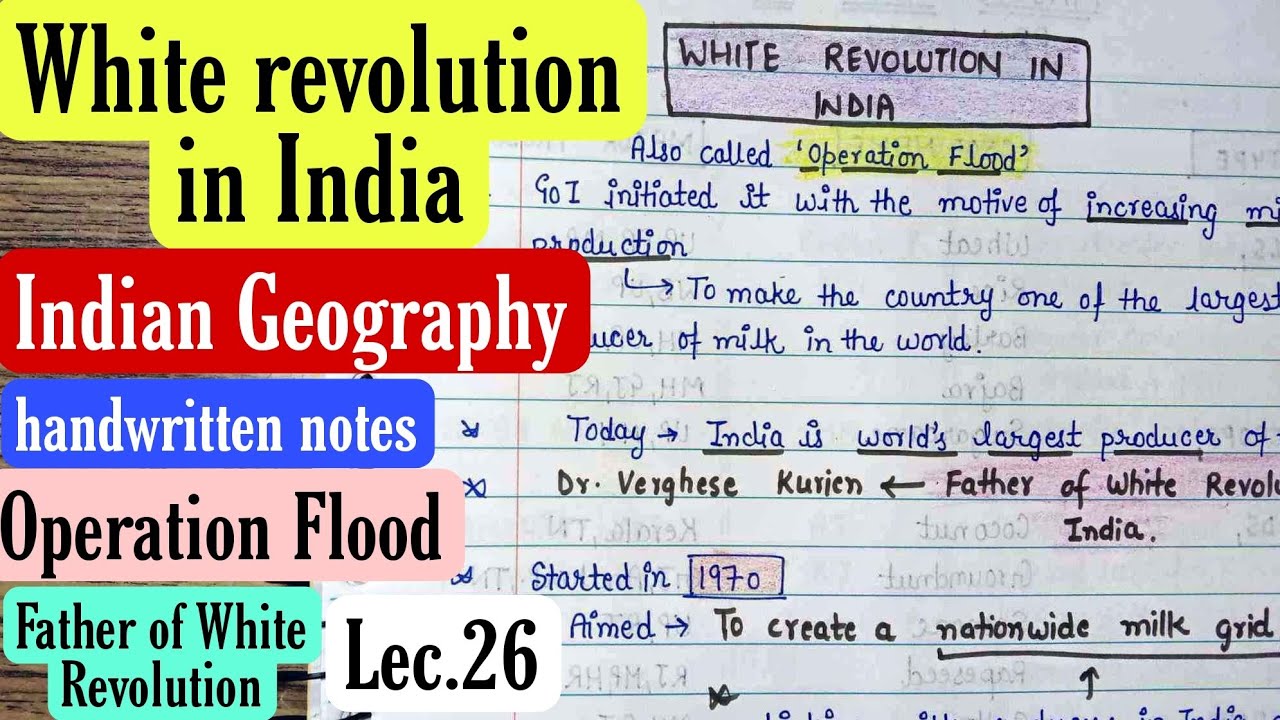 White revolution
in India
Indian Geography
handwritten notes
Operation Flood
Father of White
Revolution
Lec.26
WHITE REVOLUTION IN
INDIA
Also called 'Operation Flood'
GoI initiated it with the motive of increasing mi
production
↳ To make the country one of the largest
ucer of milk in the world.
Today → India is world's largest producer of
Dr. Verghese Kurien ← Father of White Revolu
India.
Started in 1970
Aimed → To create a nationwide milk grid
in India